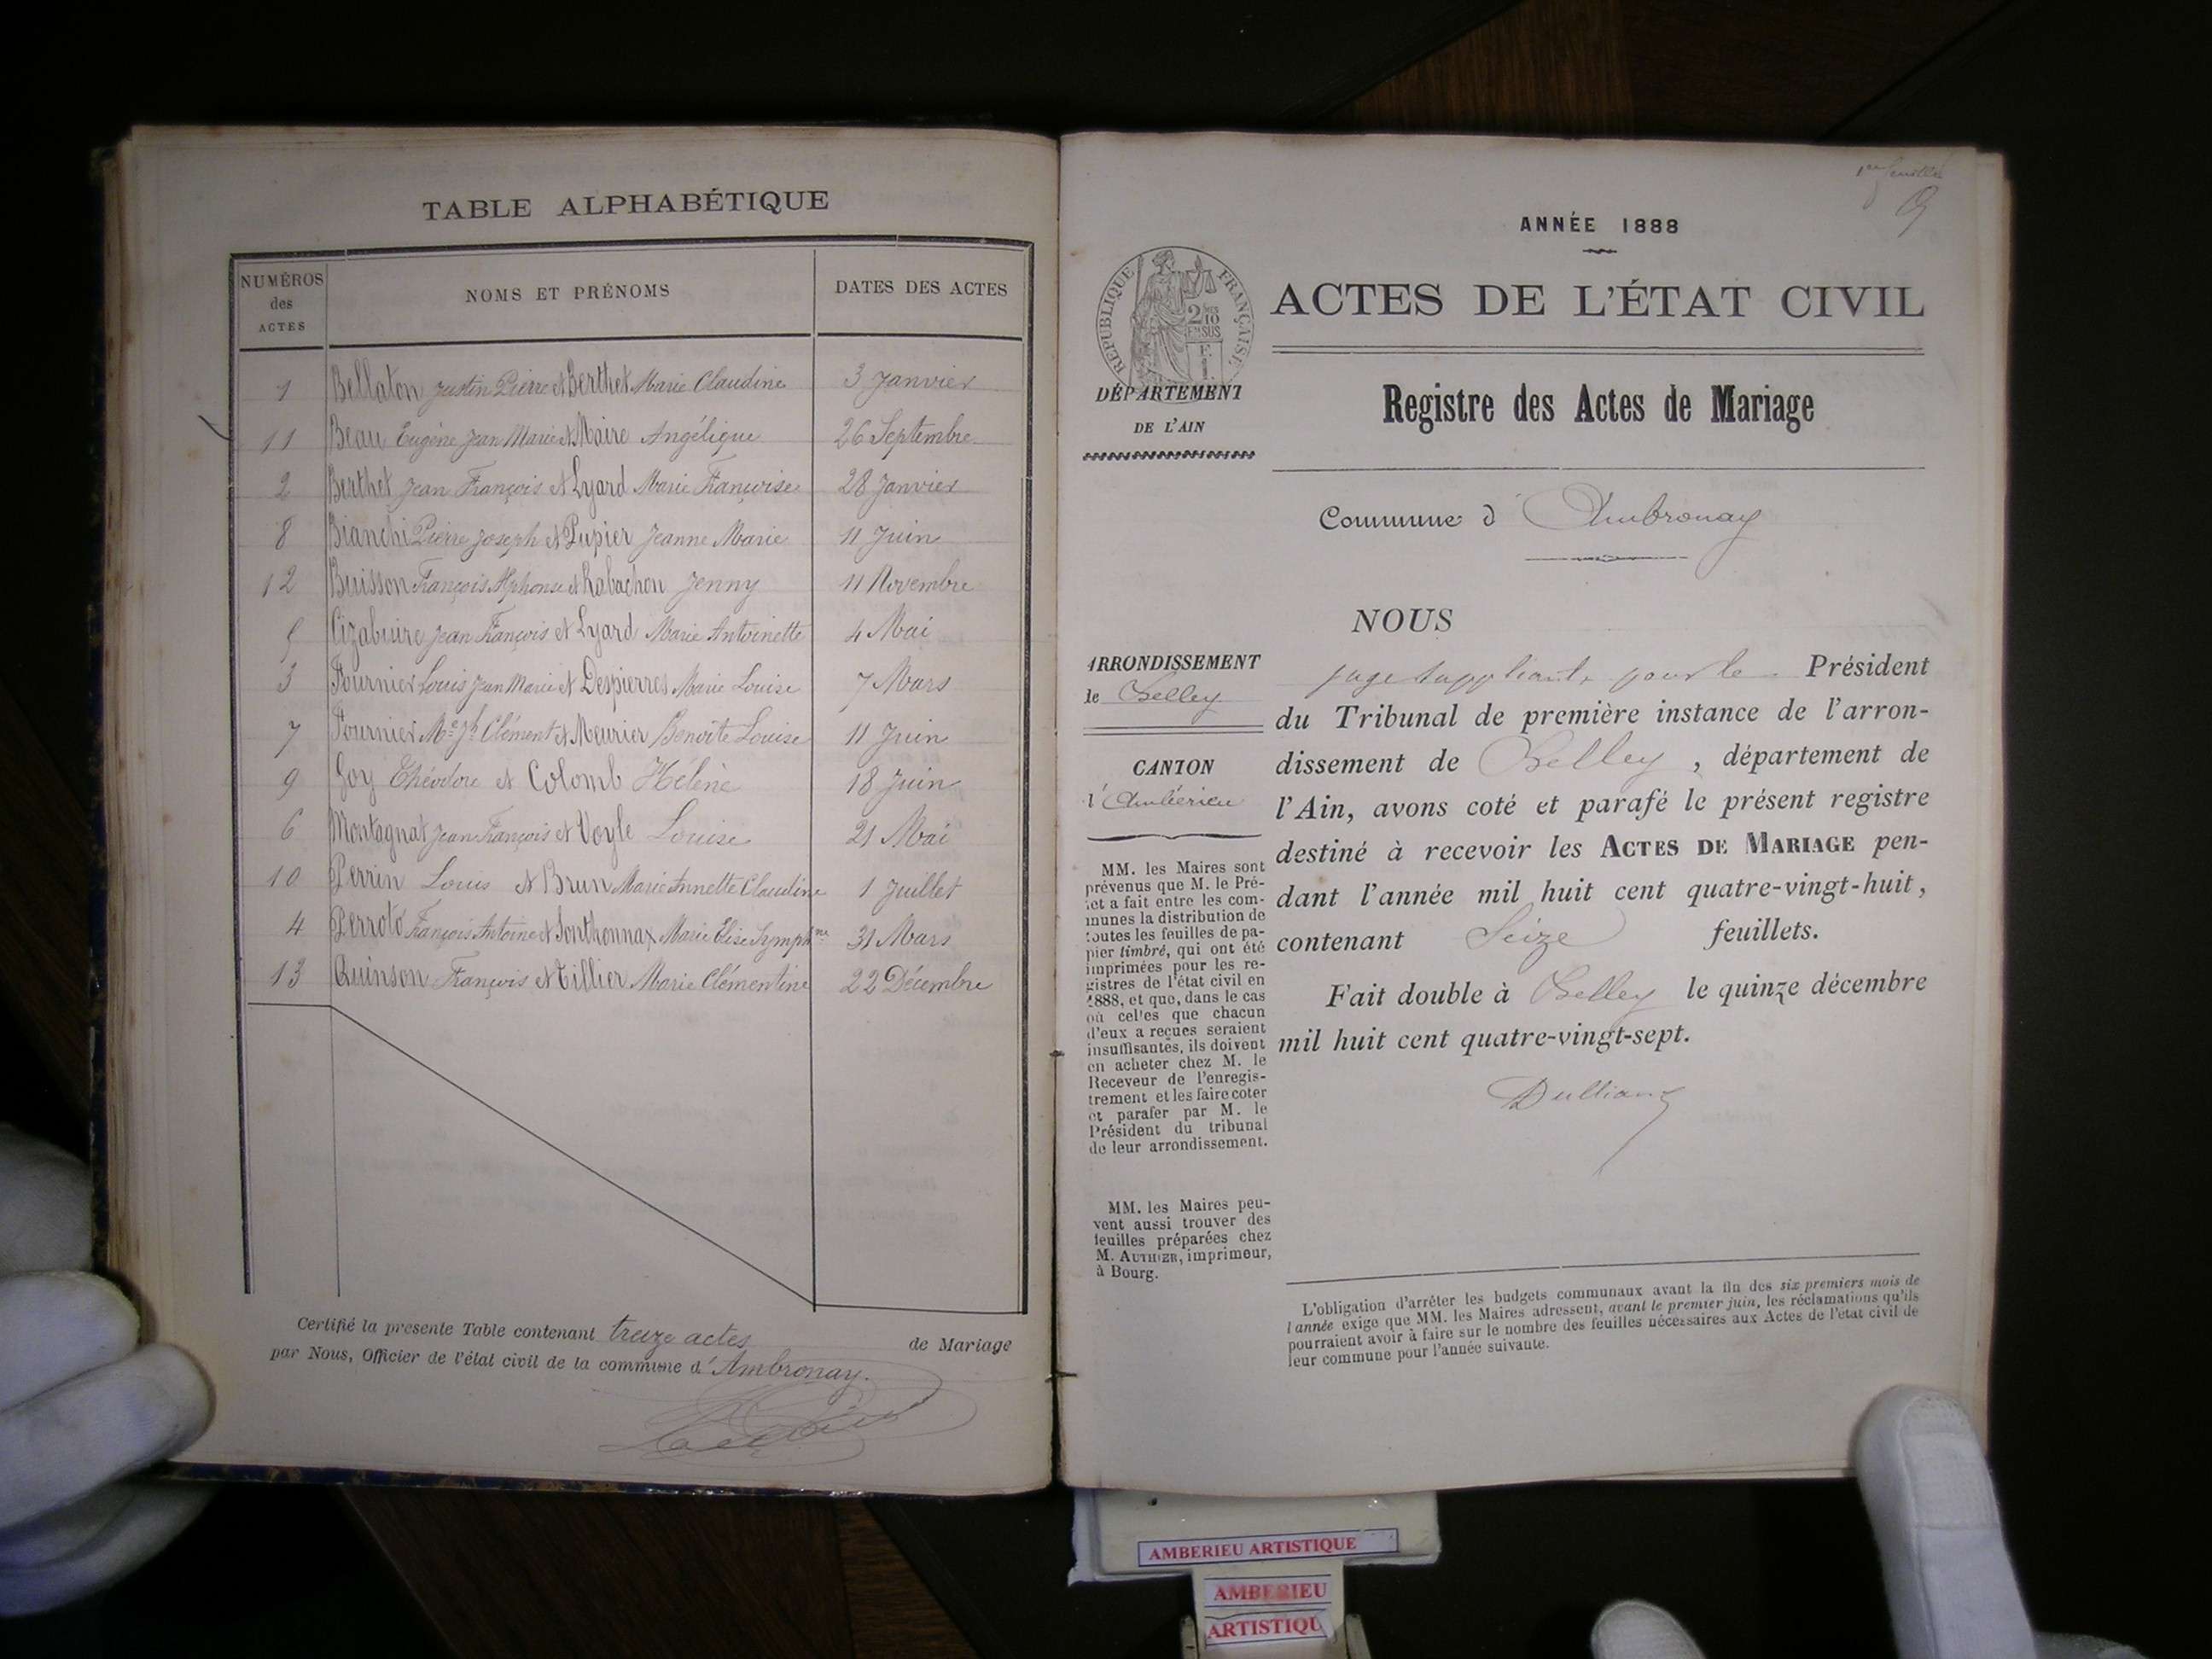 TABLE ALPHABÉTIQUE
NUMÉROS
des
ACTES
NOMS ET PRÉNOMS
DATES DES ACTES
1 Bellaton Justin Pierre et Berthet Marie Claudine 3 Janvier
11 Beau Eugène Jean Marie et Maire Angélique 26 Septembre
2 Berthet Jean François et Lyard Marie Françoise 28 Janvier
8 Bianchi Pierre Joseph et Pupier Jeanne Marie 11 Juin
12 Buisson François Alphonse et Rabachon Jenny 11 Novembre
5 Cizabuire Jean François et Lyard Marie Antoinette 4 Mai
3 Fournier Louis Jean Marie et Despierres Marie Louise 7 Mars
7 Fournier Me Jh Clément et Meunier Benoîte Louise 11 Juin
9 Goy Théodore et Colomb Hélène 18 Juin
6 Montagnat Jean François et Voyle Louise 21 Mai
10 Perrin Louis et Brun Marie Annette Claudine 1 Juillet
4 Perroto François Antoine et Sonthonnax Marie Elise Symphne 31 Mars
13 Quinson François et Tillier Marie Clémentine 22 Décembre
Certifié la présente Table contenant treize actes de Mariage
par Nous, Officier de l'état civil de la commune d'Ambronay.
1re feuillet
ANNÉE 1888
RÉPUBLIQUE FRANÇAISE
2 10
EN SUS
ACTES DE L'ÉTAT CIVIL
DÉPARTEMENT
DE L'AIN
Registre des Actes de Mariage
Commune d'Ambronay
NOUS
ARRONDISSEMENT
de Belley
CANTON
d'Ambérieu
juge suppléant, pour le Président
du Tribunal de première instance de l'arron-
dissement de Belley, département de
l'Ain, avons coté et parafé le présent registre
destiné à recevoir les ACTES DE MARIAGE pen-
dant l'année mil huit cent quatre-vingt-huit,
contenant Seize feuillets.
Fait double à Belley le quinze décembre
mil huit cent quatre-vingt-sept.
Dulliang
MM. les Maires sont
prévenus que M. le Pré-
fet a fait entre les com-
munes la distribution de
toutes les feuilles de pa-
pier timbré, qui ont été
imprimées pour les re-
gistres de l'état civil en
1888, et que, dans le cas
où celles que chacun
d'eux a reçues seraient
insuffisantes, ils doivent
en acheter chez M. le
Receveur de l'enregis-
trement et les faire coter
et parafer par M. le
Président du tribunal
de leur arrondissement.
MM. les Maires peu-
vent aussi trouver des
feuilles préparées chez
M. AUTHIER, imprimeur,
à Bourg.
L'obligation d'arrêter les budgets communaux avant la fin des six premiers mois de
l'année exige que MM. les Maires adressent, avant le premier juin, les réclamations qu'ils
pourraient avoir à faire sur le nombre des feuilles nécessaires aux Actes de l'état civil de
leur commune pour l'année suivante.
AMBERIEU ARTISTIQUE
AMBERIEU
ARTISTIQU